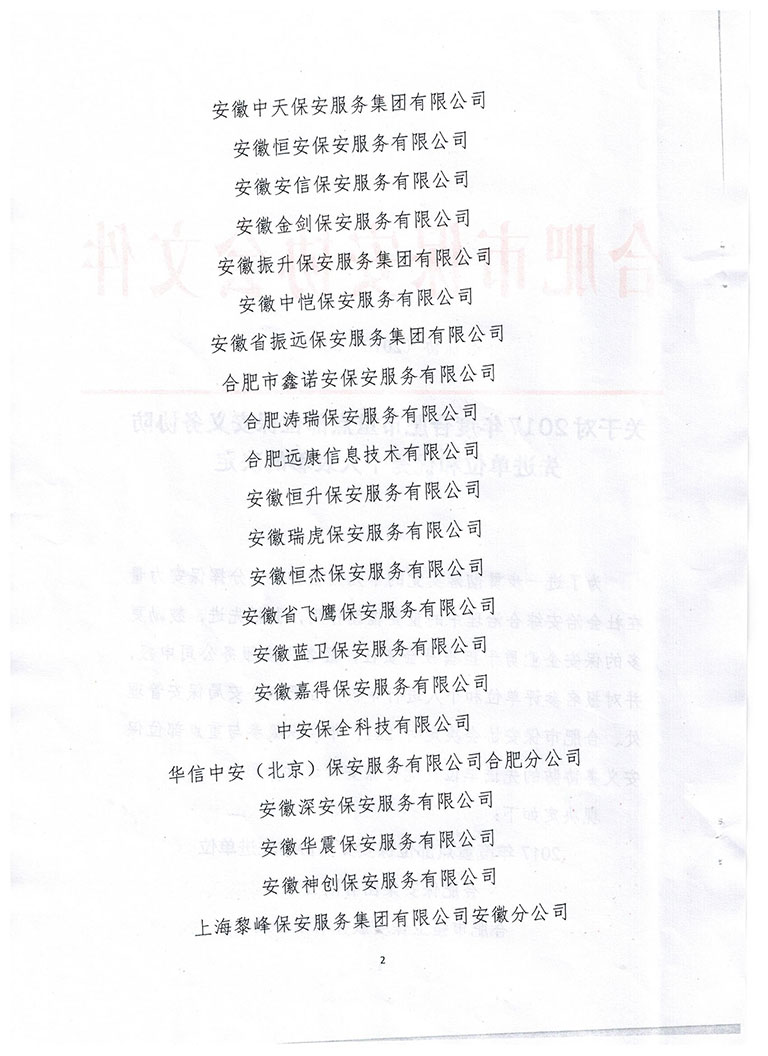 安徽中天保安服务集团有限公司
安徽恒安保安服务有限公司
安徽安信保安服务有限公司
安徽金剑保安服务有限公司
安徽振升保安服务集团有限公司
安徽中恺保安服务有限公司
安徽省振远保安服务集团有限公司
合肥市鑫诺安保安服务有限公司
合肥涛瑞保安服务有限公司
合肥远康信息技术有限公司
安徽恒升保安服务有限公司
安徽瑞虎保安服务有限公司
安徽恒杰保安服务有限公司
安徽省飞鹰保安服务有限公司
安徽蓝卫保安服务有限公司
安徽嘉得保安服务有限公司
中安保全科技有限公司
华信中安（北京）保安服务有限公司合肥分公司
安徽深安保安服务有限公司
安徽华震保安服务有限公司
安徽神创保安服务有限公司
上海黎峰保安服务集团有限公司安徽分公司
2